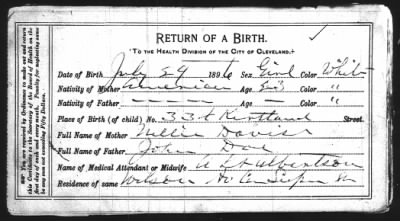 RETURN OF A BIRTH.
To the Health Division of the City of Cleveland.
Date of Birth July 29 1896 Sex Girl Color White
Nativity of Mother American Age Color "
Nativity of Father ----- Age Color "
Place of Birth (of child) No. 33 Kirtland Street.
Full Name of Mother Nellie Davis
Full Name of Father John Doe
Name of Medical Attendant or Midwife Albertson
Residence of same Wilson Av
You are required by Ordinance to make out and return
this Certificate to the Secretary of the Board of Health on the
first day of each and every month. Penalty for neglecting same
not exceeding Fifty Dollars.